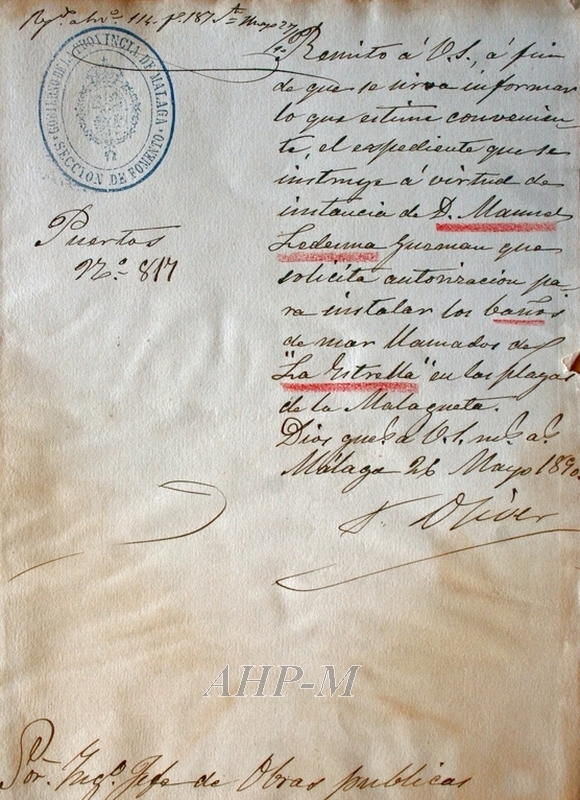 Regº al nº 114. fº 187 Mayo 27/90
GOBIERNO DE LA PROVINCIA DE MALAGA
SECCION DE FOMENTO
Remito á V.S., á fin
de que se sirva informar
lo que estime convenien-
te, el expediente que se
instruye á virtud de
instancia de D. Manuel
Ledesma Guzman que
solicita autorización pa-
ra instalar los baños
de mar llamados de
"La Estrella" en las playas
de la Malagueta.
Dios gue. á V.S. ms. as.
Málaga 26 Mayo 1890.
Oliver
Puertos
Nº 817
AHP-M
Sor. Ingo. Jefe de Obras publicas